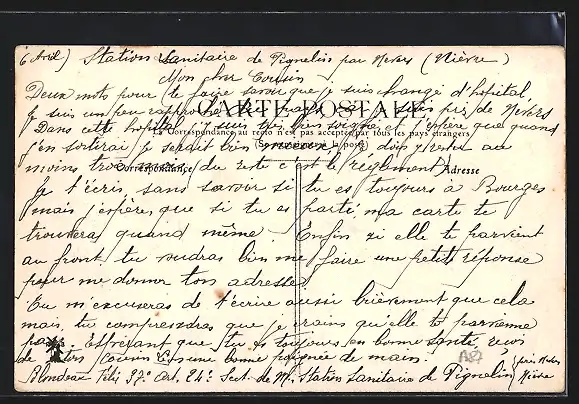 (6 Avril) Station Sanitaire de Pignelin par Nevers (Nièvre)
Mon cher Cousin
Deux mots pour te faire savoir que je suis changé d'hôpital,
je suis un peu rapproché je suis près de Nevers
CARTE POSTALE
Dans cette hôpital je suis très bien soigné et j'espère que quand
La Correspondance au recto n'est pas acceptée par tous les pays étrangers
(Se renseigner à la poste)
j'en sortirai je serait très je dois y rester au
moins trois mois (du reste c'est le réglement)
Correspondance
Adresse
Je t'écris, sans savoir si tu es toujours à Bourges
mais j'espère, que si tu es parti, ma carte te
trouvera quand même. Enfin si elle te parvient
au front tu voudras bien me faire une petite réponse
pour me donner ton adresse.
Tu m'excuseras de t'écrire aussi brièvement que cela
mais, tu comprendras que je crains qu'elle te parvienne
pas. Espérant que tu es toujours en bonne santé, reçois
de ton Cousin une bonne poignée de main.
Blondeau Félix 37e Art. 24e Sect. de M. Station Sanitaire de Pignelin (près Nevers
Nièvre